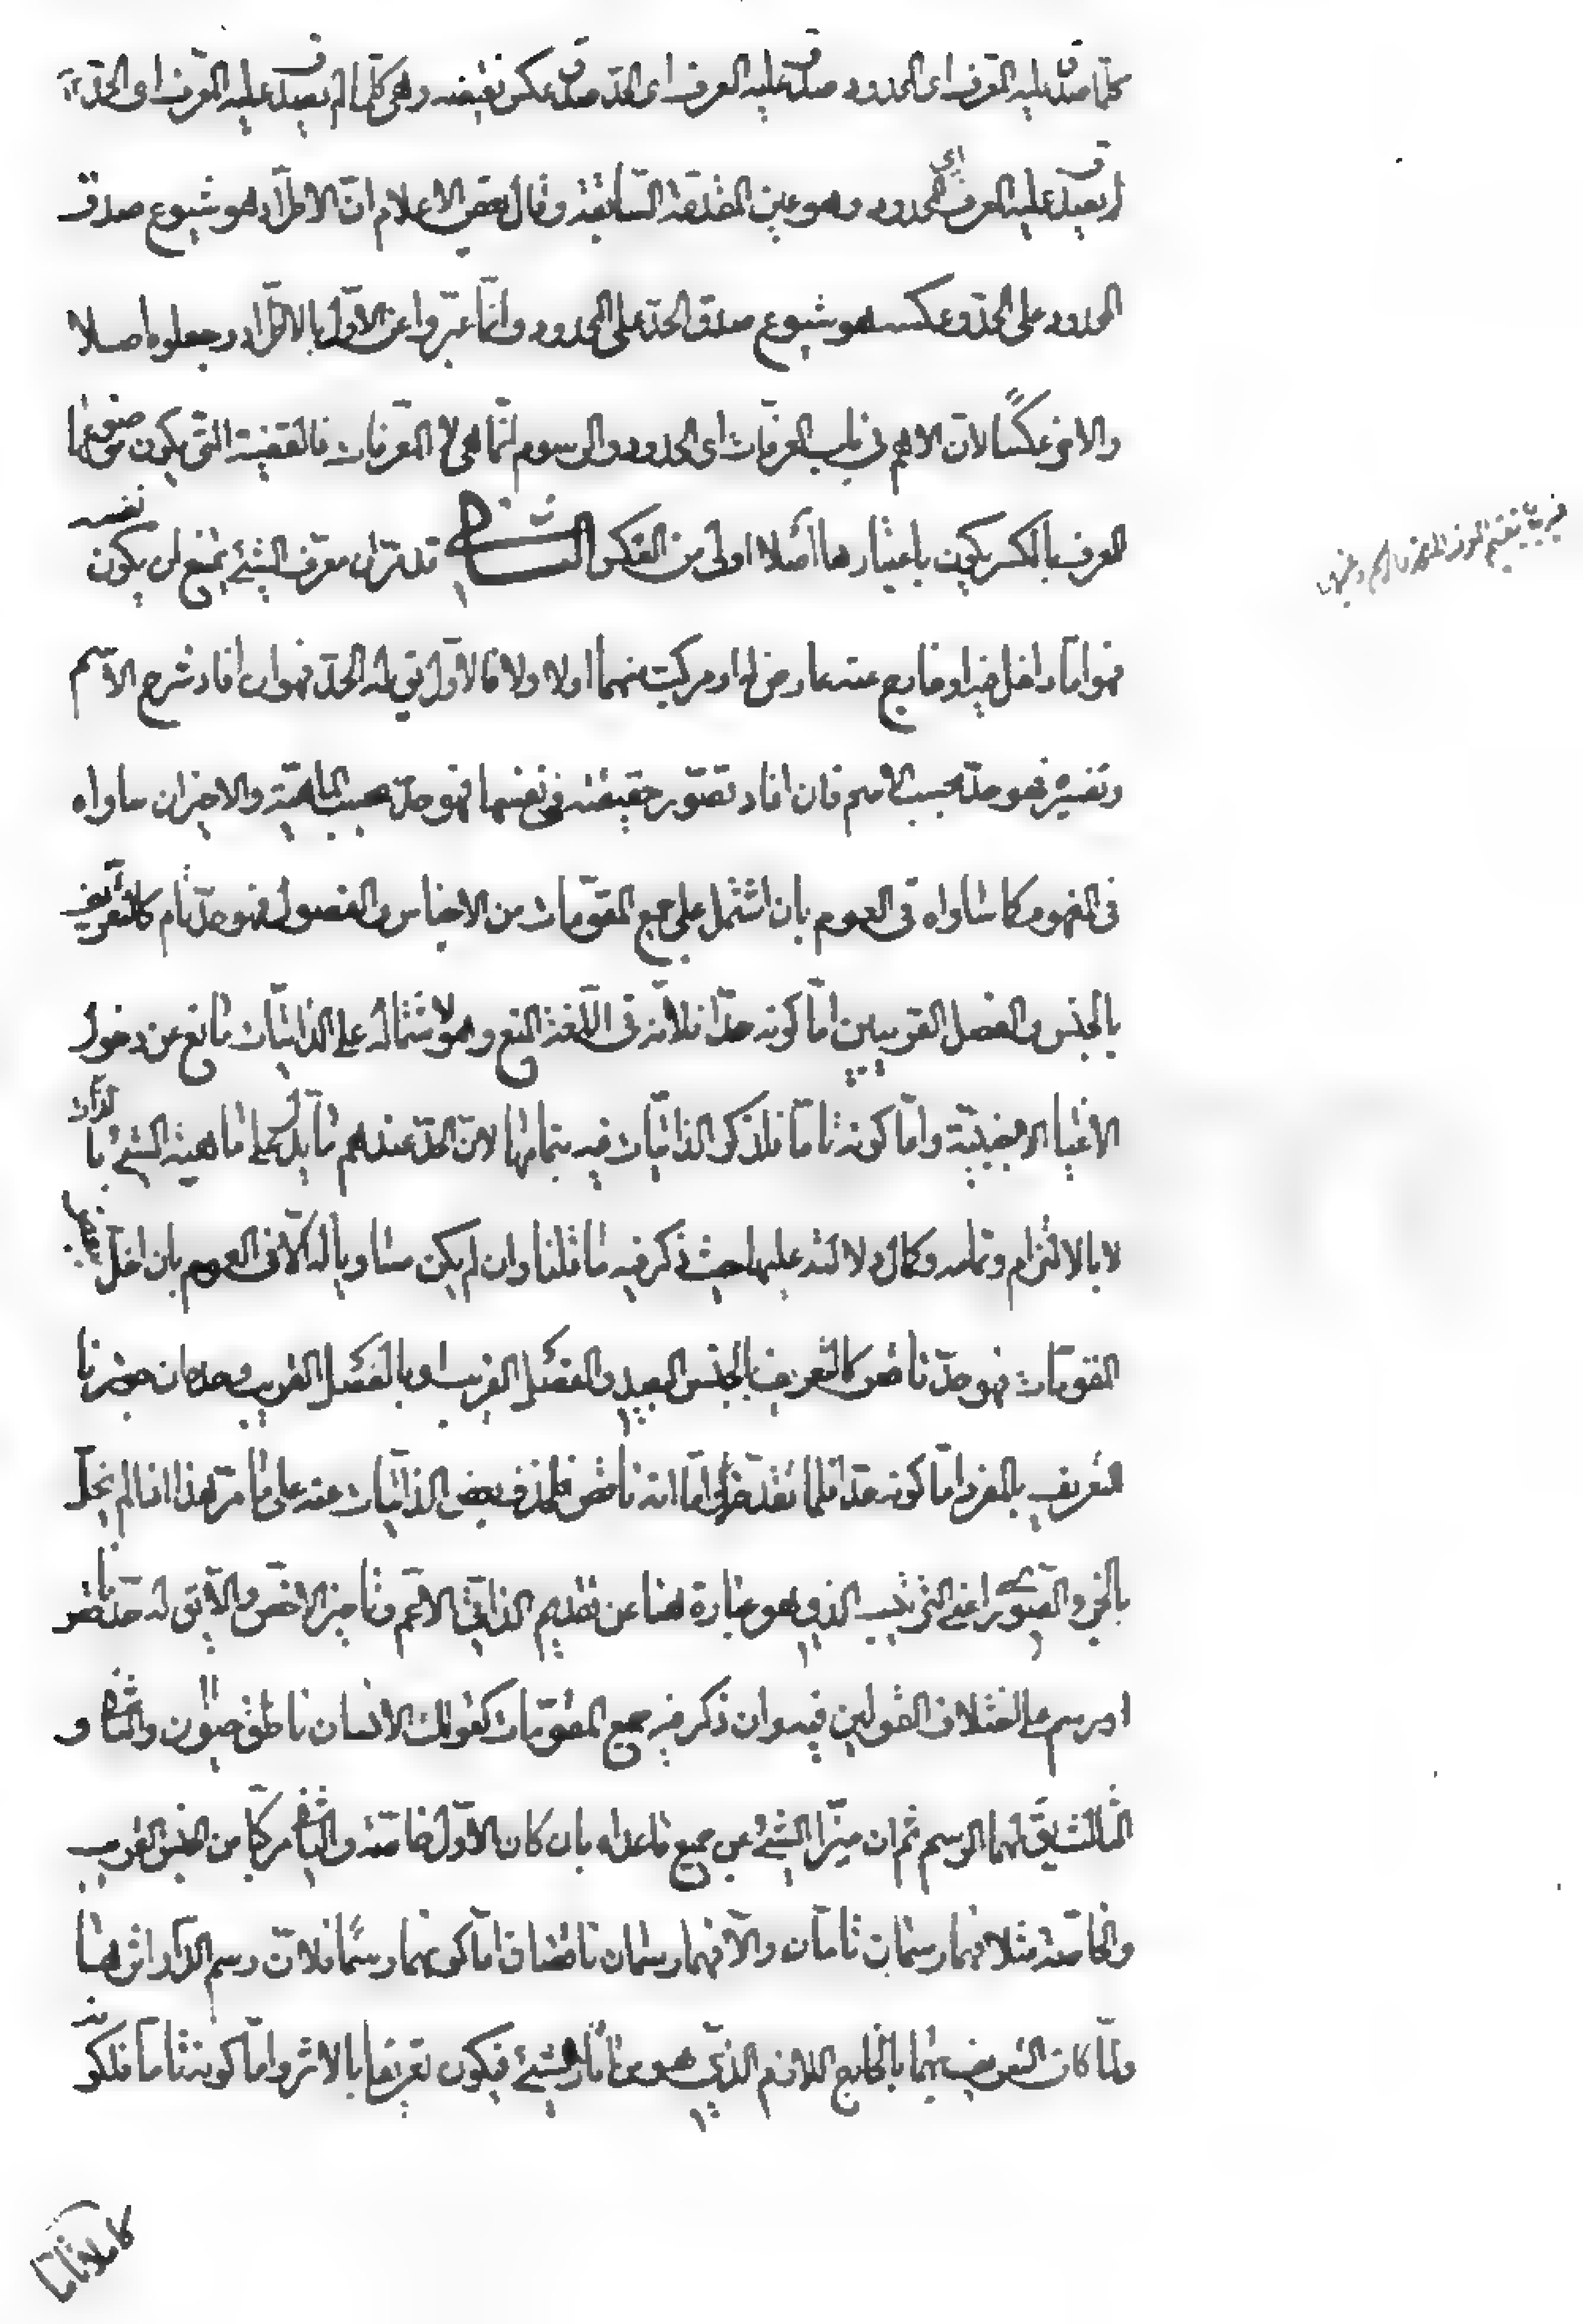 كلما صدق عليه المعرف اى المحدود صدق عليه المعرف اى الحد صدق عكس نقيضه وهى كلما لم يصدق عليه المعرف اى الحد
لم يصدق عليه المعرف اى المحدود وهو عين المقدمة السابقة وقال بعض الاعلام ان الاطراد هو شيوع صدق
المحدود على الحد وعكسه هو شيوع صدق الحد على المحدود وانما عبروا عن الاول بالاطراد وجعلوه اصلا
والاخر عكسا لان الاهم فى باب المعرفات اى الحدود والرسوم انما هى المعرفات فالقضية التى يكون موضوعها
المعرف بالكسر يكون باعتبارها اصلا اولى من العكس التاسع قد مر ان معرف الشئ يمتنع ان يكون نفسه
فهو اما داخل فيه او خارج عنه عارض له او مركب منهما اولا ولا فالاول يق له الحد فهو ان افاد شرح الاسم
وتفسيره فهو حد بحسب الاسم فان افاد تصور حقيقته فى نفسها فهو حد بحسب الماهية والاخير ان ساواه
فى المفهوم كما ساواه فى العموم بان اشتمل على جميع المقومات من الاجناس والفصول فهو حد تام كالتعريف
بالجنس والفصل القريبين اما كونه حدا فلانه فى اللغة المنع وهو لاشتماله على الذاتيات مانع عن دخول
الاغيار الاجنبية واما كونه تاما فلذكر الذاتيات فيه بتمامها لان الحد عندهم ما يدل على ماهية الشئ بالذات
لا بالالتزام وتمامه وكمال دلالته عليها حيث ذكر فيه ما قلنا وان لم يكن مساويا له الا فى العموم بان اخل ببعض
المقومات فهو حد ناقص كالتعريف بالجنس البعيد والفصل القريب او بالفصل القريب وحده ان جوزنا
التعريف بالمفرد اما كونه حدا فلما تقدم واما انه ناقص فلحذف بعض الذاتيات عنه على ما مر هذا اذا لم يخل
بالجزء الصورى اعنى الترتيب الذى هو عبارة هنا عن تقديم الذاتى الاعم وتاخير الاخص والا يق له حد ناقص
او رسم على اختلاف القولين فيه وان ذكر فيه جميع المقومات كقولك الانسان ناطق حيوان والثانى و
الثالث يق لهما الرسم ثم ان ميزا الشئ عن جميع ما عداه بان كان الاول خاصة والثانى مركبا من الجنس القريب
والخاصة مثلا فهما رسمان تامان والا فهما رسمان ناقصان اما كونهما رسما فلان رسم الدار اثرها
ولما كان التعريف بهما بالخارج اللازم الذى هو من اثار الشئ فيكون تعريفا بالاثر واما كونه تاما فلكونه
كاملا تاما